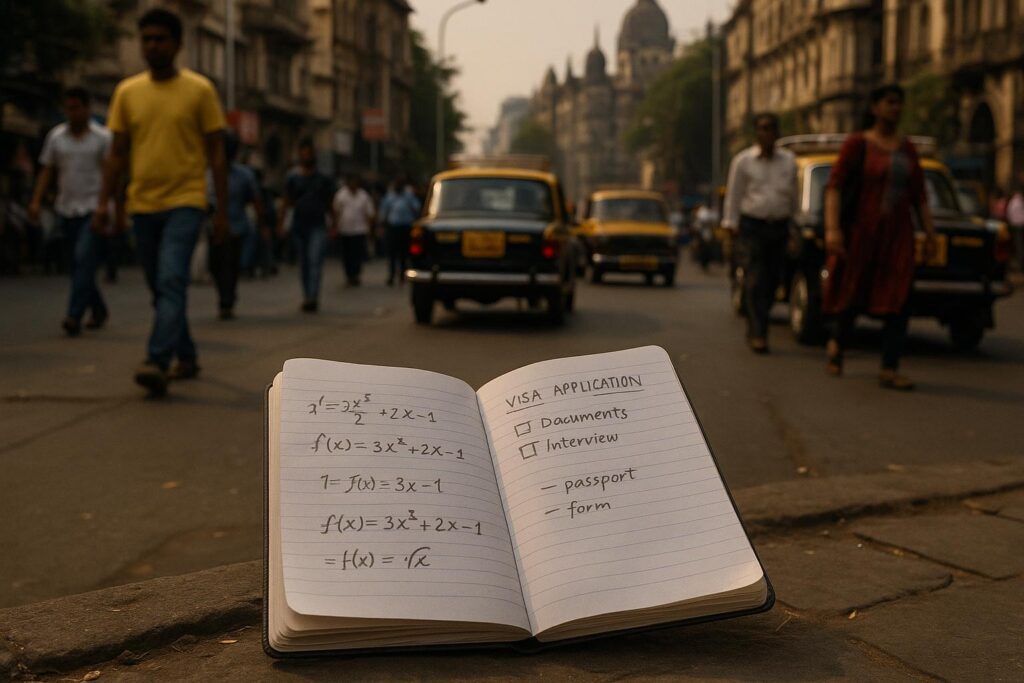 x' = 3x⁵/2 + 2x - 1
f(x) = 3x² + 2x - 1
1 = f(x) = 3x - 1
f(x) = 3x³ + 2x - 1
= f(x) = √x
VISA APPLICATION
☐ Dacuments
☐ Interview
— passport
— form